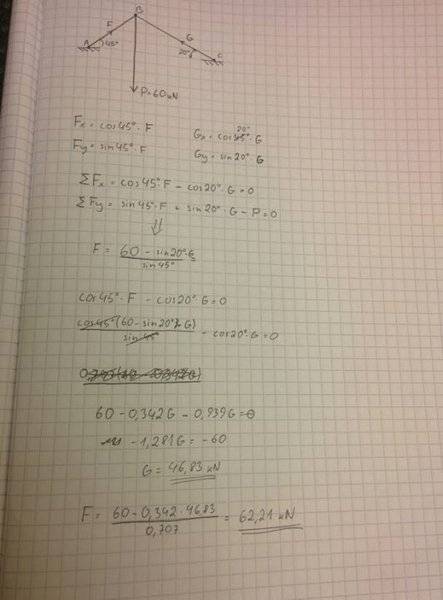 B
F
G
A 45°
20°
C
P=60kN
Fx = cos45°·F
Gx = cos20°·G
Fy = sin45°·F
Gy = sin20°·G
ΣFx = cos45°·F - cos20°·G = 0
ΣFy = sin45°·F + sin20°·G - P = 0
⇓
F = 60 - sin20°·G / sin45°
cos45°·F - cos20°·G = 0
cos45°(60 - sin20°·G) / sin45° - cos20°·G = 0
60 - 0,342G - 0,939G = 0
-1,281G = -60
G = 46,83 kN
F = 60 - 0,342·46,83 / 0,707 = 62,21 kN